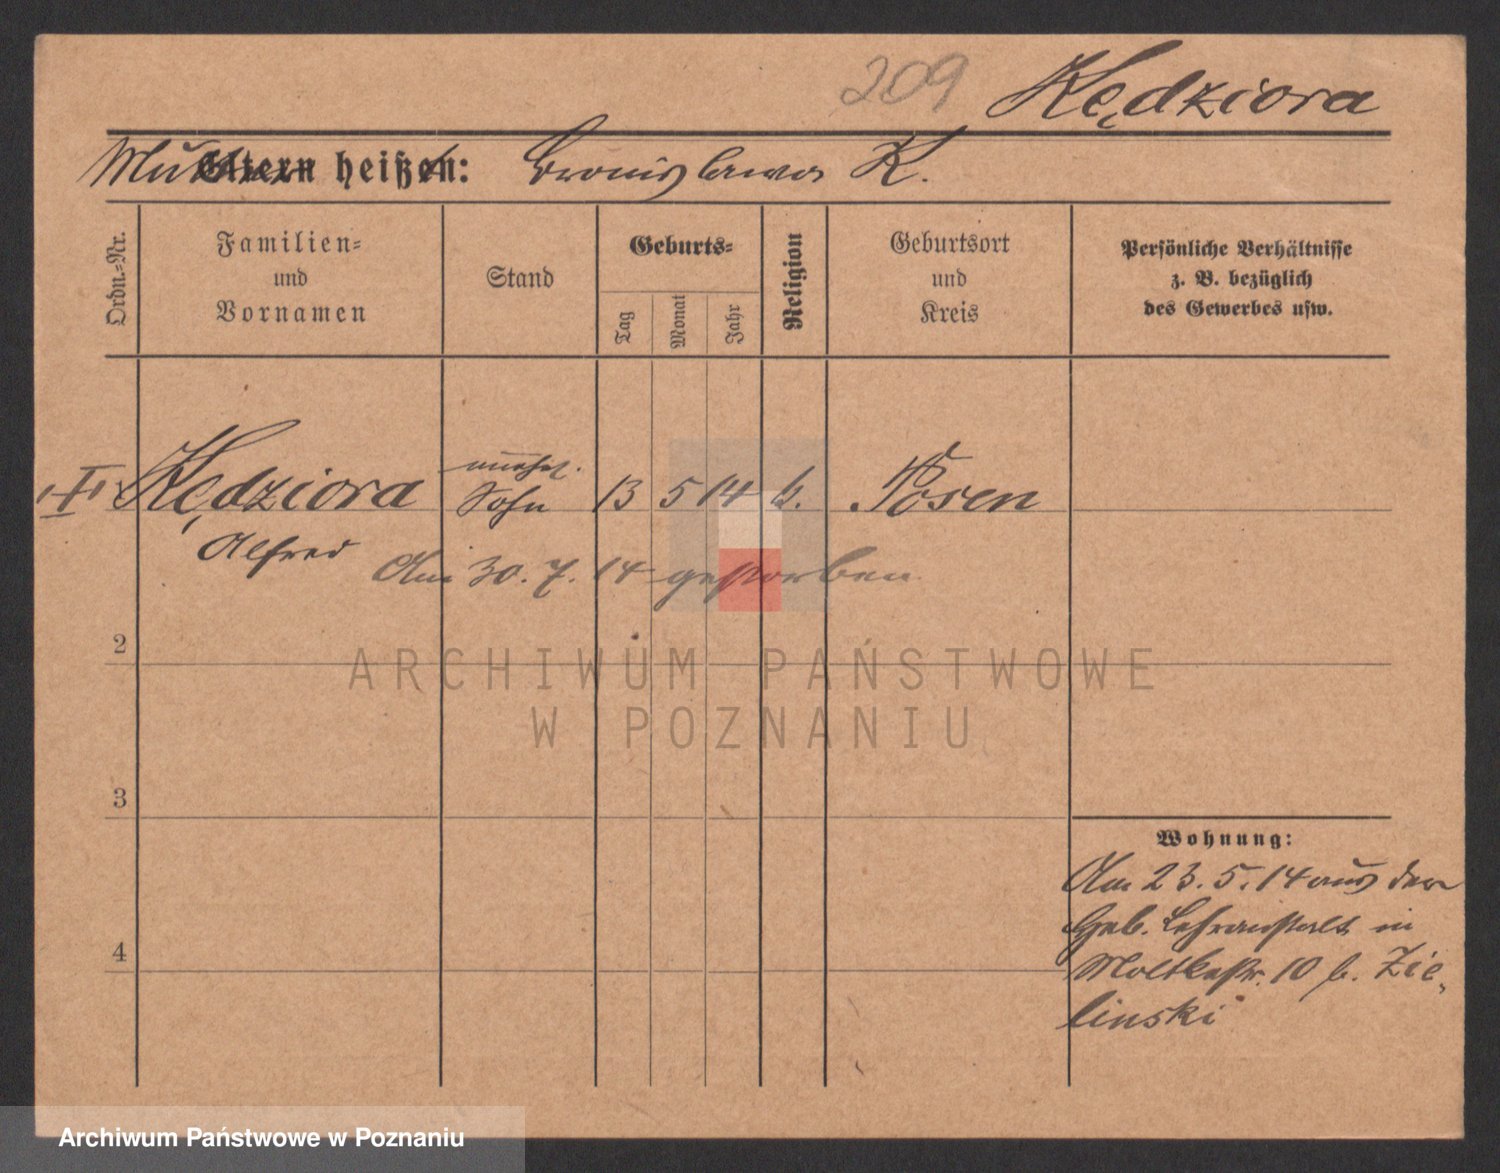 209 Kędziora
Mutter heißt Eltern heißen: Bronislawa K.
Ordn.-Nr.
Familien-
und
Vornamen
Stand
Geburts-
Tag
Monat
Jahr
Religion
Geburtsort
und
Kreis
Persönliche Verhältnisse
z. B. bezüglich
des Gewerbes usw.
Kędziora unehel. Sohn 13 5 14 k. Posen
Alfred
Am 30. 7. 14 gestorben.
2
3
4
Wohnung:
Am 23. 5. 14 aus der
Heb. Lehranstalt in
Moltkestr. 10 b. Zie-
linski
ARCHIWUM PAŃSTWOWE
W POZNANIU
Archiwum Państwowe w Poznaniu